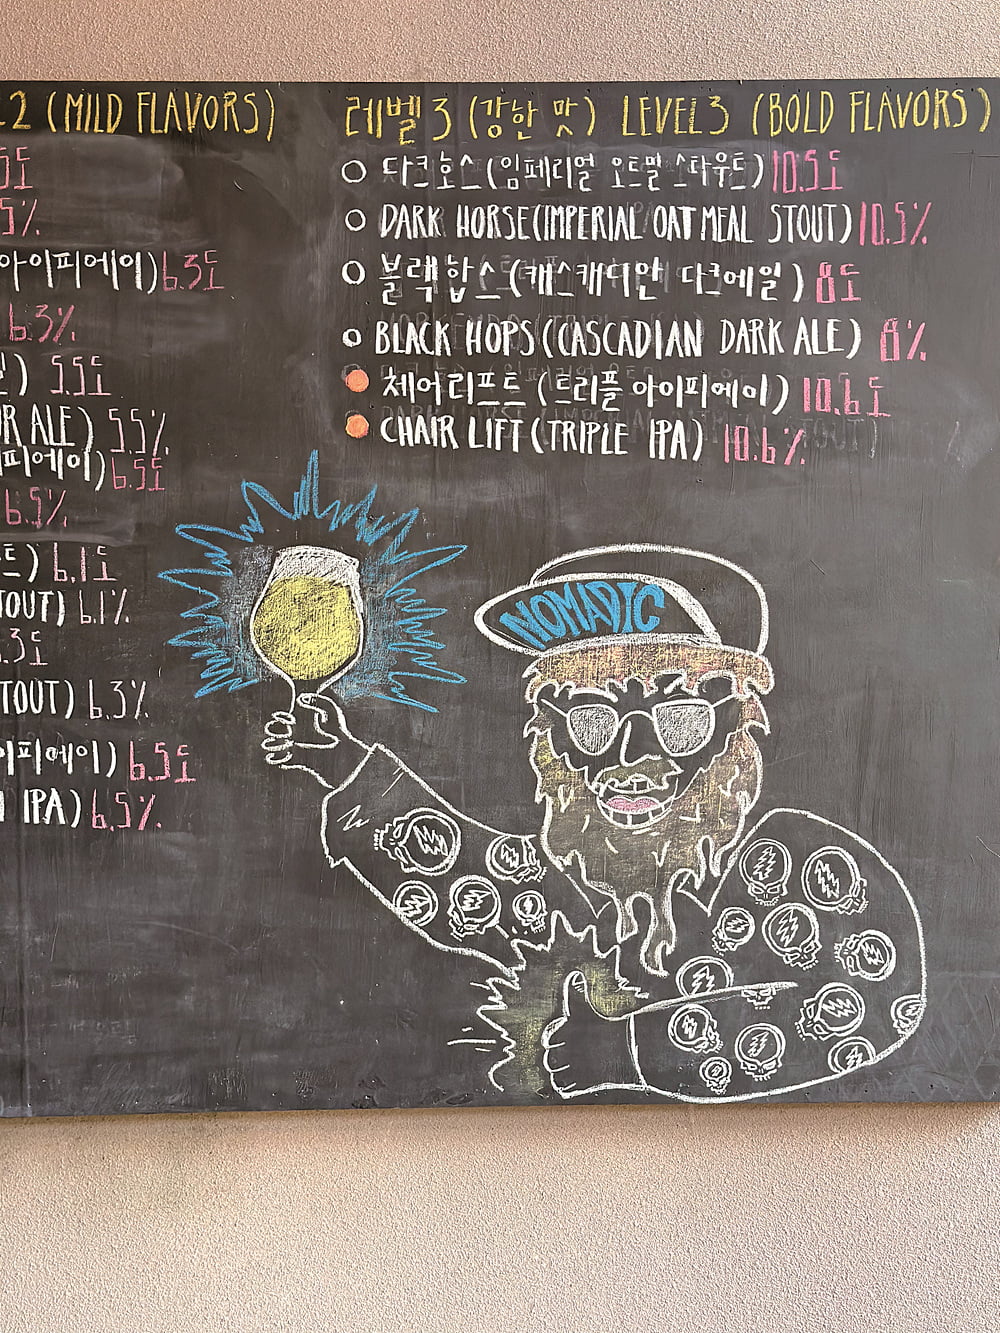 2 (MILD FLAVORS)
5도
5%
아이피에이) 6.3도
6.3%
) 5.5도
R ALE) 5.5%
피에이) 6.5도
6.5%
트) 6.1도
TOUT) 6.1%
.3도
TOUT) 6.3%
이피에이) 6.5도
IPA) 6.5%
레벨 3 (강한 맛) LEVEL 3 (BOLD FLAVORS)
다크호스 (임페리얼 오트밀 스타우트) 10.5도
DARK HORSE (IMPERIAL OATMEAL STOUT) 10.5%
블랙합스 (캐스캐디안 다크에일) 8도
BLACK HOPS (CASCADIAN DARK ALE) 8%
체어리프트 (트리플 아이피에이) 10.6도
CHAIR LIFT (TRIPLE IPA) 10.6%
NOMADIC